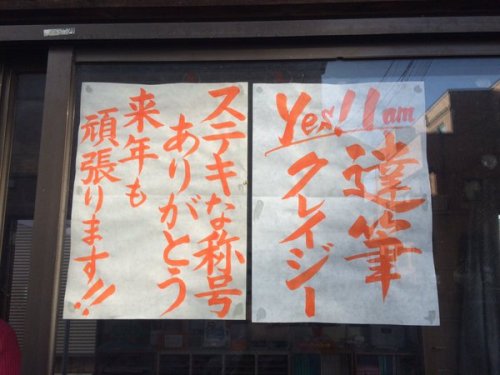 Yes!! I am
達筆
クレイジー
ステキな称号
ありがとう
来年も
頑張ります!!